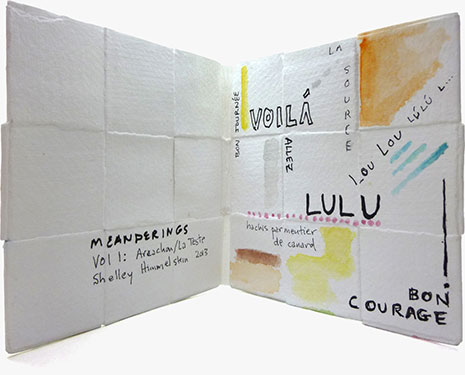 MEANDERINGS
Vol 1: Arcachon/La Teste
Shelley Himmelstein 2013
BON JOURNÉE
VOILÁ
LA SOURCE
ALLEZ
LOU LOU LÚLÚ L...
LULU
hachis parmentier
de canard
BON
COURAGE